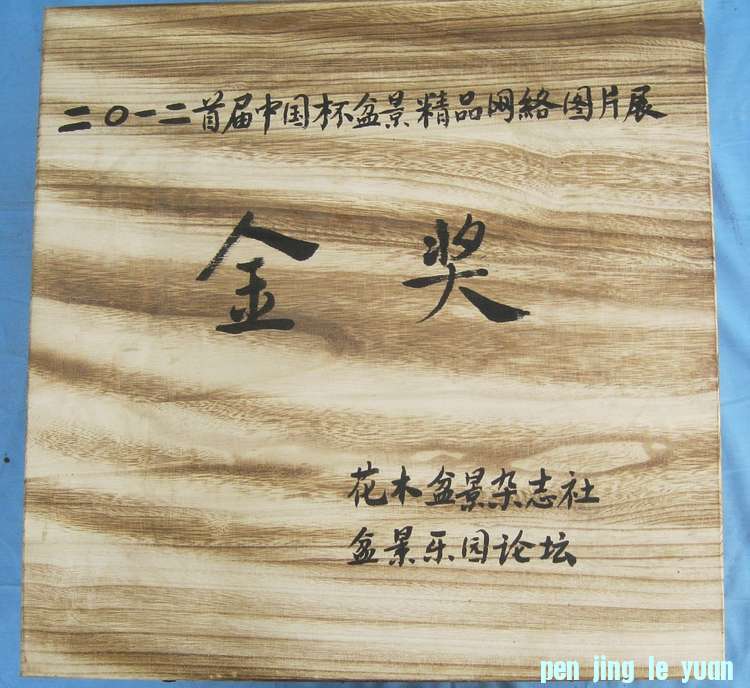 二〇一二首届中国杯盆景精品网络图片展
金奖
花木盆景杂志社
盆景乐园论坛
pen jing le yuan